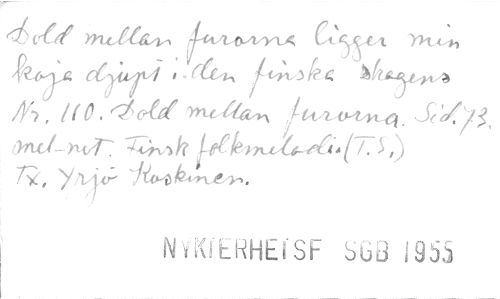 Dold mellan furorna ligger min
koja djupt i den finska skogens
Nr. 110. Dold mellan furorna. Sid. 73.
mel-not. Finsk folkmelodi. (T.S.)
Tx. Yrjö Koskinen.
NYKTERHETSF SGB 1955